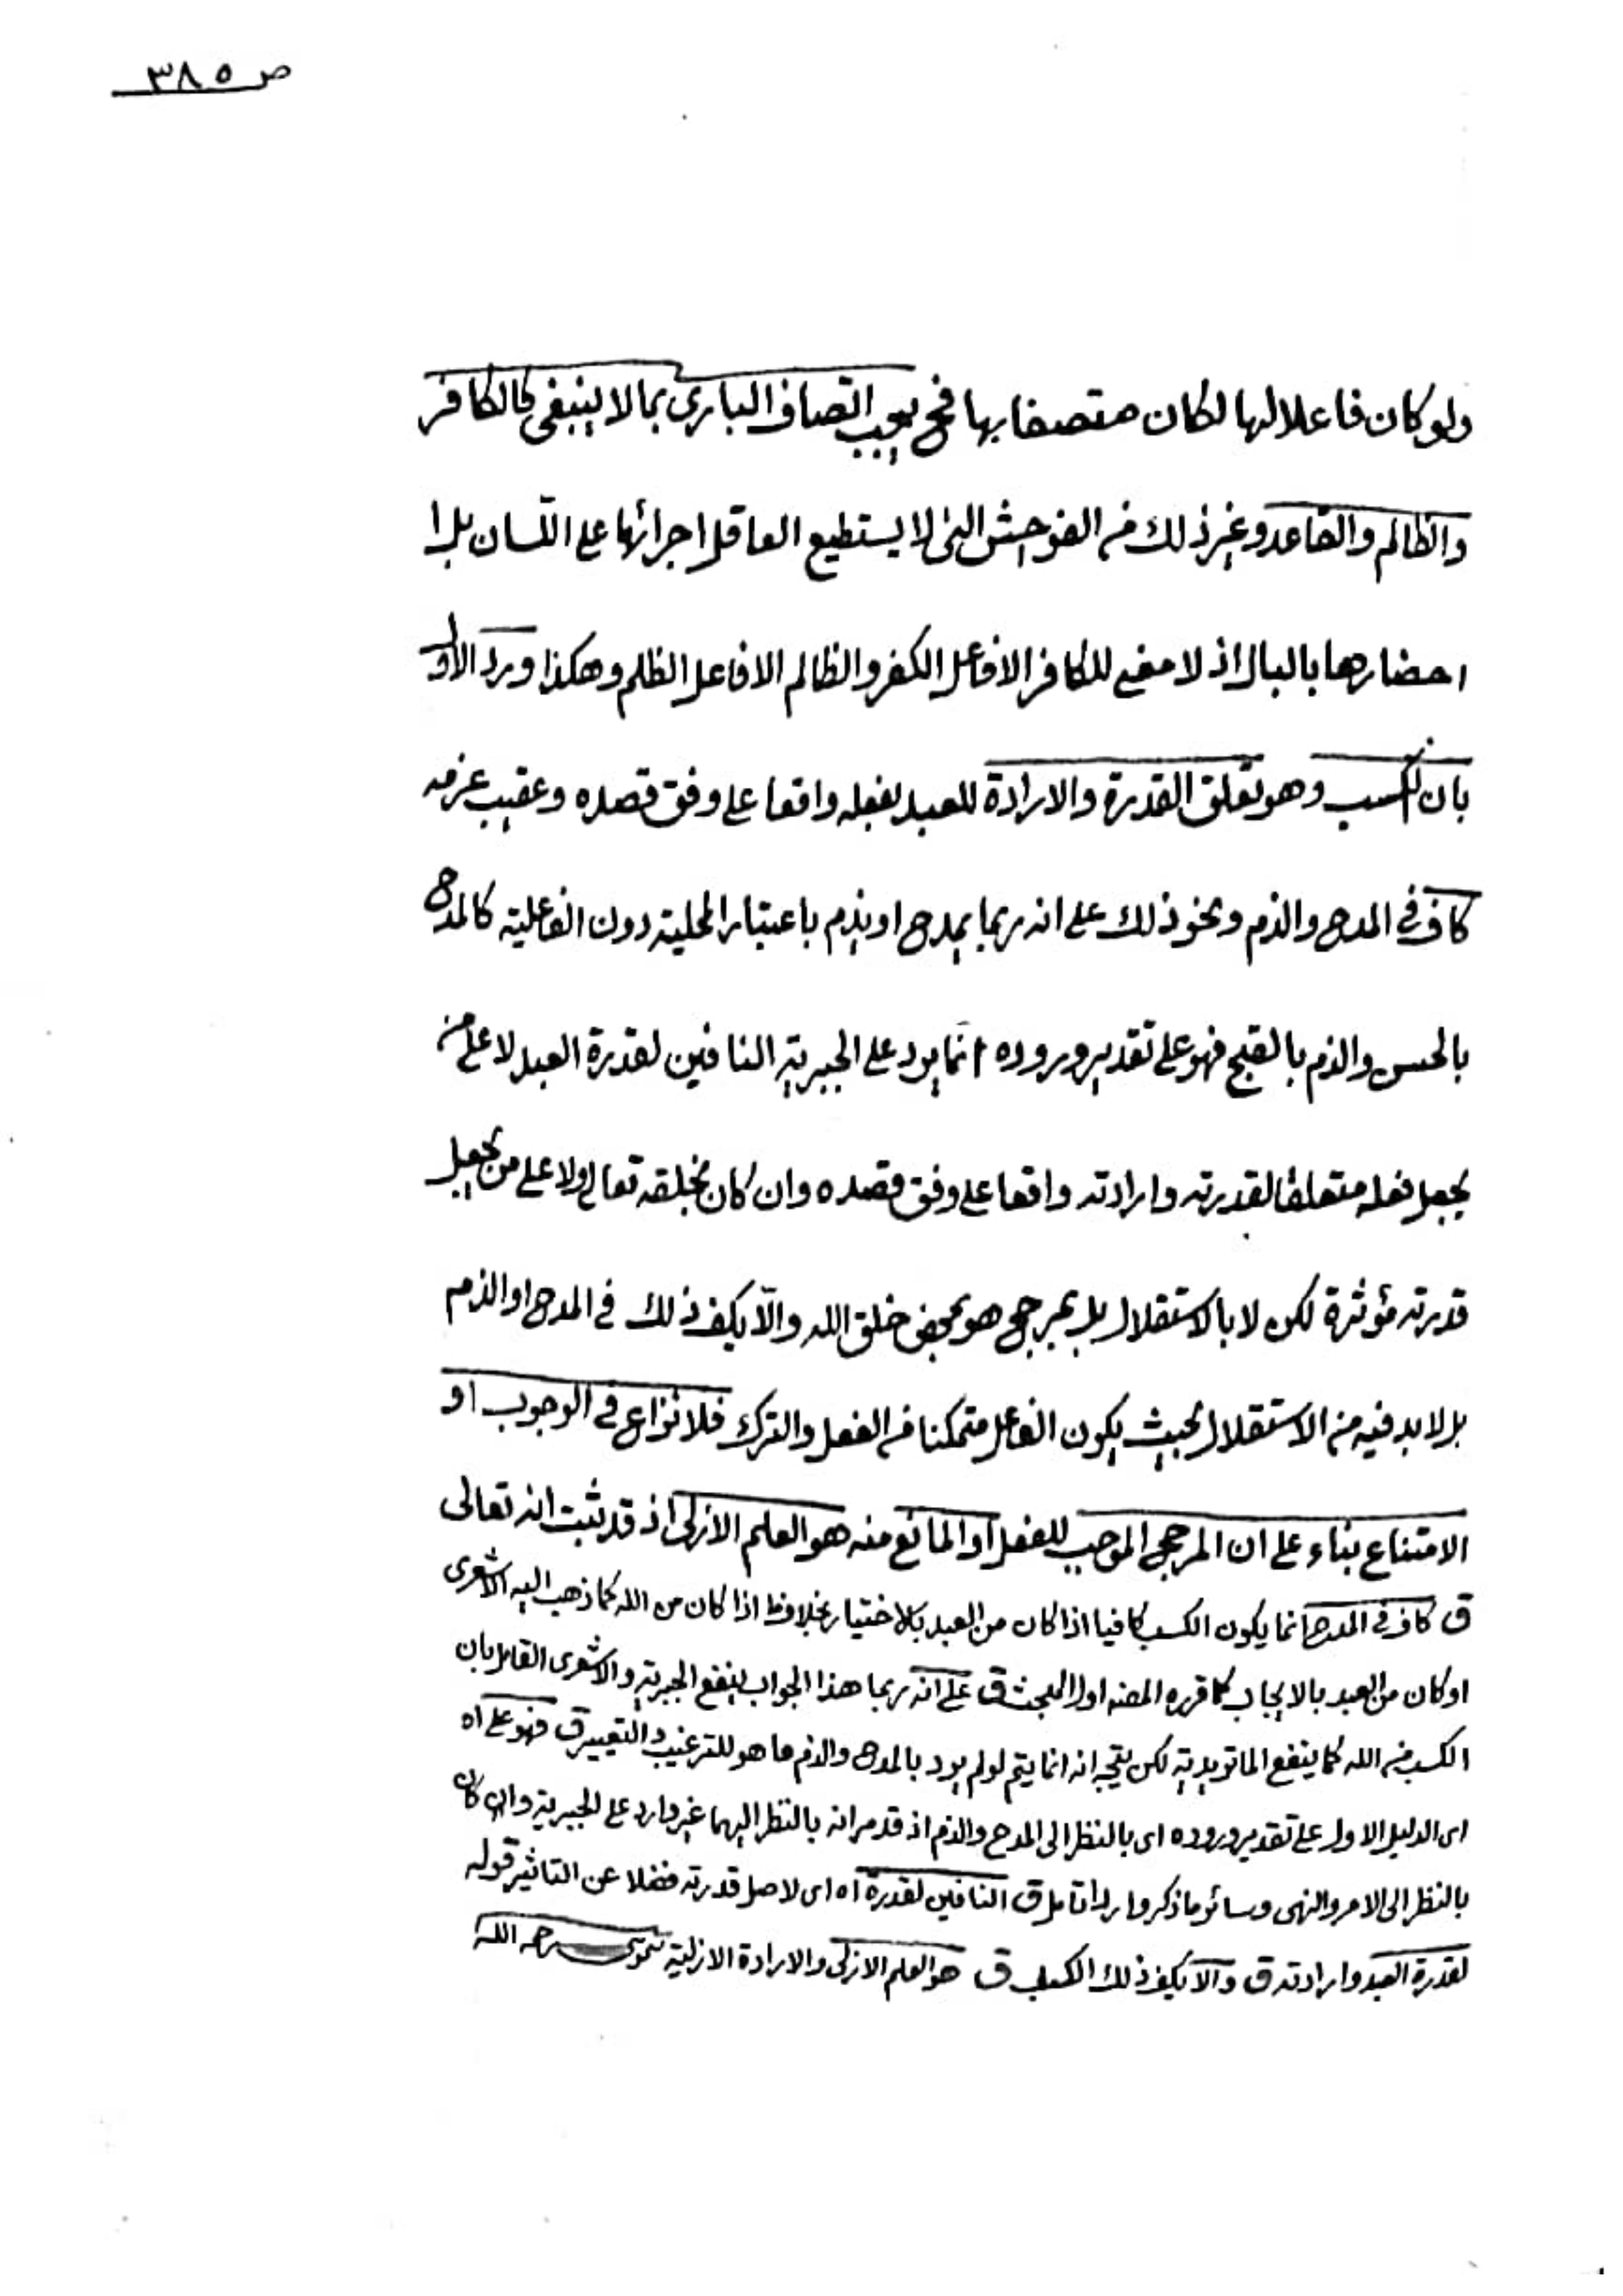 ص ٣٨٥
ولو كان فاعلا لها لكان متصفا بها فح يجب اتصاف البارى بما لا ينبغى كالكافر
والظالم والقاعد وغير ذلك من الفوحش التى لا يستطيع العاقل اجرائها على اللسان بل ا
احضارها بالبال اذ لا معنى للكافر الا فاعل الكفر والظالم الا فاعل الظلم وهكذا ورد الاول
بان الكسب وهو تعلق القدرة والارادة للعبد بفعله واقعا على وفق قصده وعقيب عزمه
كاف فى المدح والذم ونحو ذلك على انه ربما يمدح او يذم باعتبار المحلية دون الفاعلية كالمدح
بالحسن والذم بالقبح فهو على تقدير وروده انما يرد على الجبرية النافين لقدرة العبد لا على من
يجعل فعله متعلقا لقدرته وارادته واقعا على وفق قصده وان كان بخلقه تعالى ولا على من يجعل
قدرته مؤثرة لكن لا بالاستقلال بل بمرجح هو بمحض خلق الله والا يكف ذلك فى المدح او الذم
بل لا بد فيه من الاستقلال بحيث يكون الفاعل متمكنا من الفعل والترك فلا نزاع فى الوجوب او
الامتناع بناء على ان المرجح الموجب للفعل او المانع منه هو العلم الازلى اذ قد ثبت انه تعالى
ق كاف فى المدح انما يكون الكسب كافيا اذا كان من العبد بالاختيار بخلاف اذا كان من الله كما ذهب اليه الاشعرى
او كان من العبد بالايجاب كما قرره المصنه اول المبحث ق على انه ربما هذا الجواب ينفع الجبرية والاشعرى القائل بان
الكسب من الله كما ينفع الماتريدية لكن يتجه انه انما يتم لو لم يرد بالمدح والذم ما هو للترغيب والتعيير ق فهو على اه
اى الدليل الاول على تقدير وروده اى بالنظر الى المدح والذم اذ قد مر انه بالنظر اليهما غير وارد على الجبرية وان كان
بالنظر الى الامر والنهى وسائر ما ذكر واردا تامل ق النافين لقدرة اه اى لاصل قدرته فضلا عن التاثير قوله
لقدرة العبد وارادته ق والا يكف ذلك الكسب ق هو العلم الازلى والارادة الازلية رحمه الله